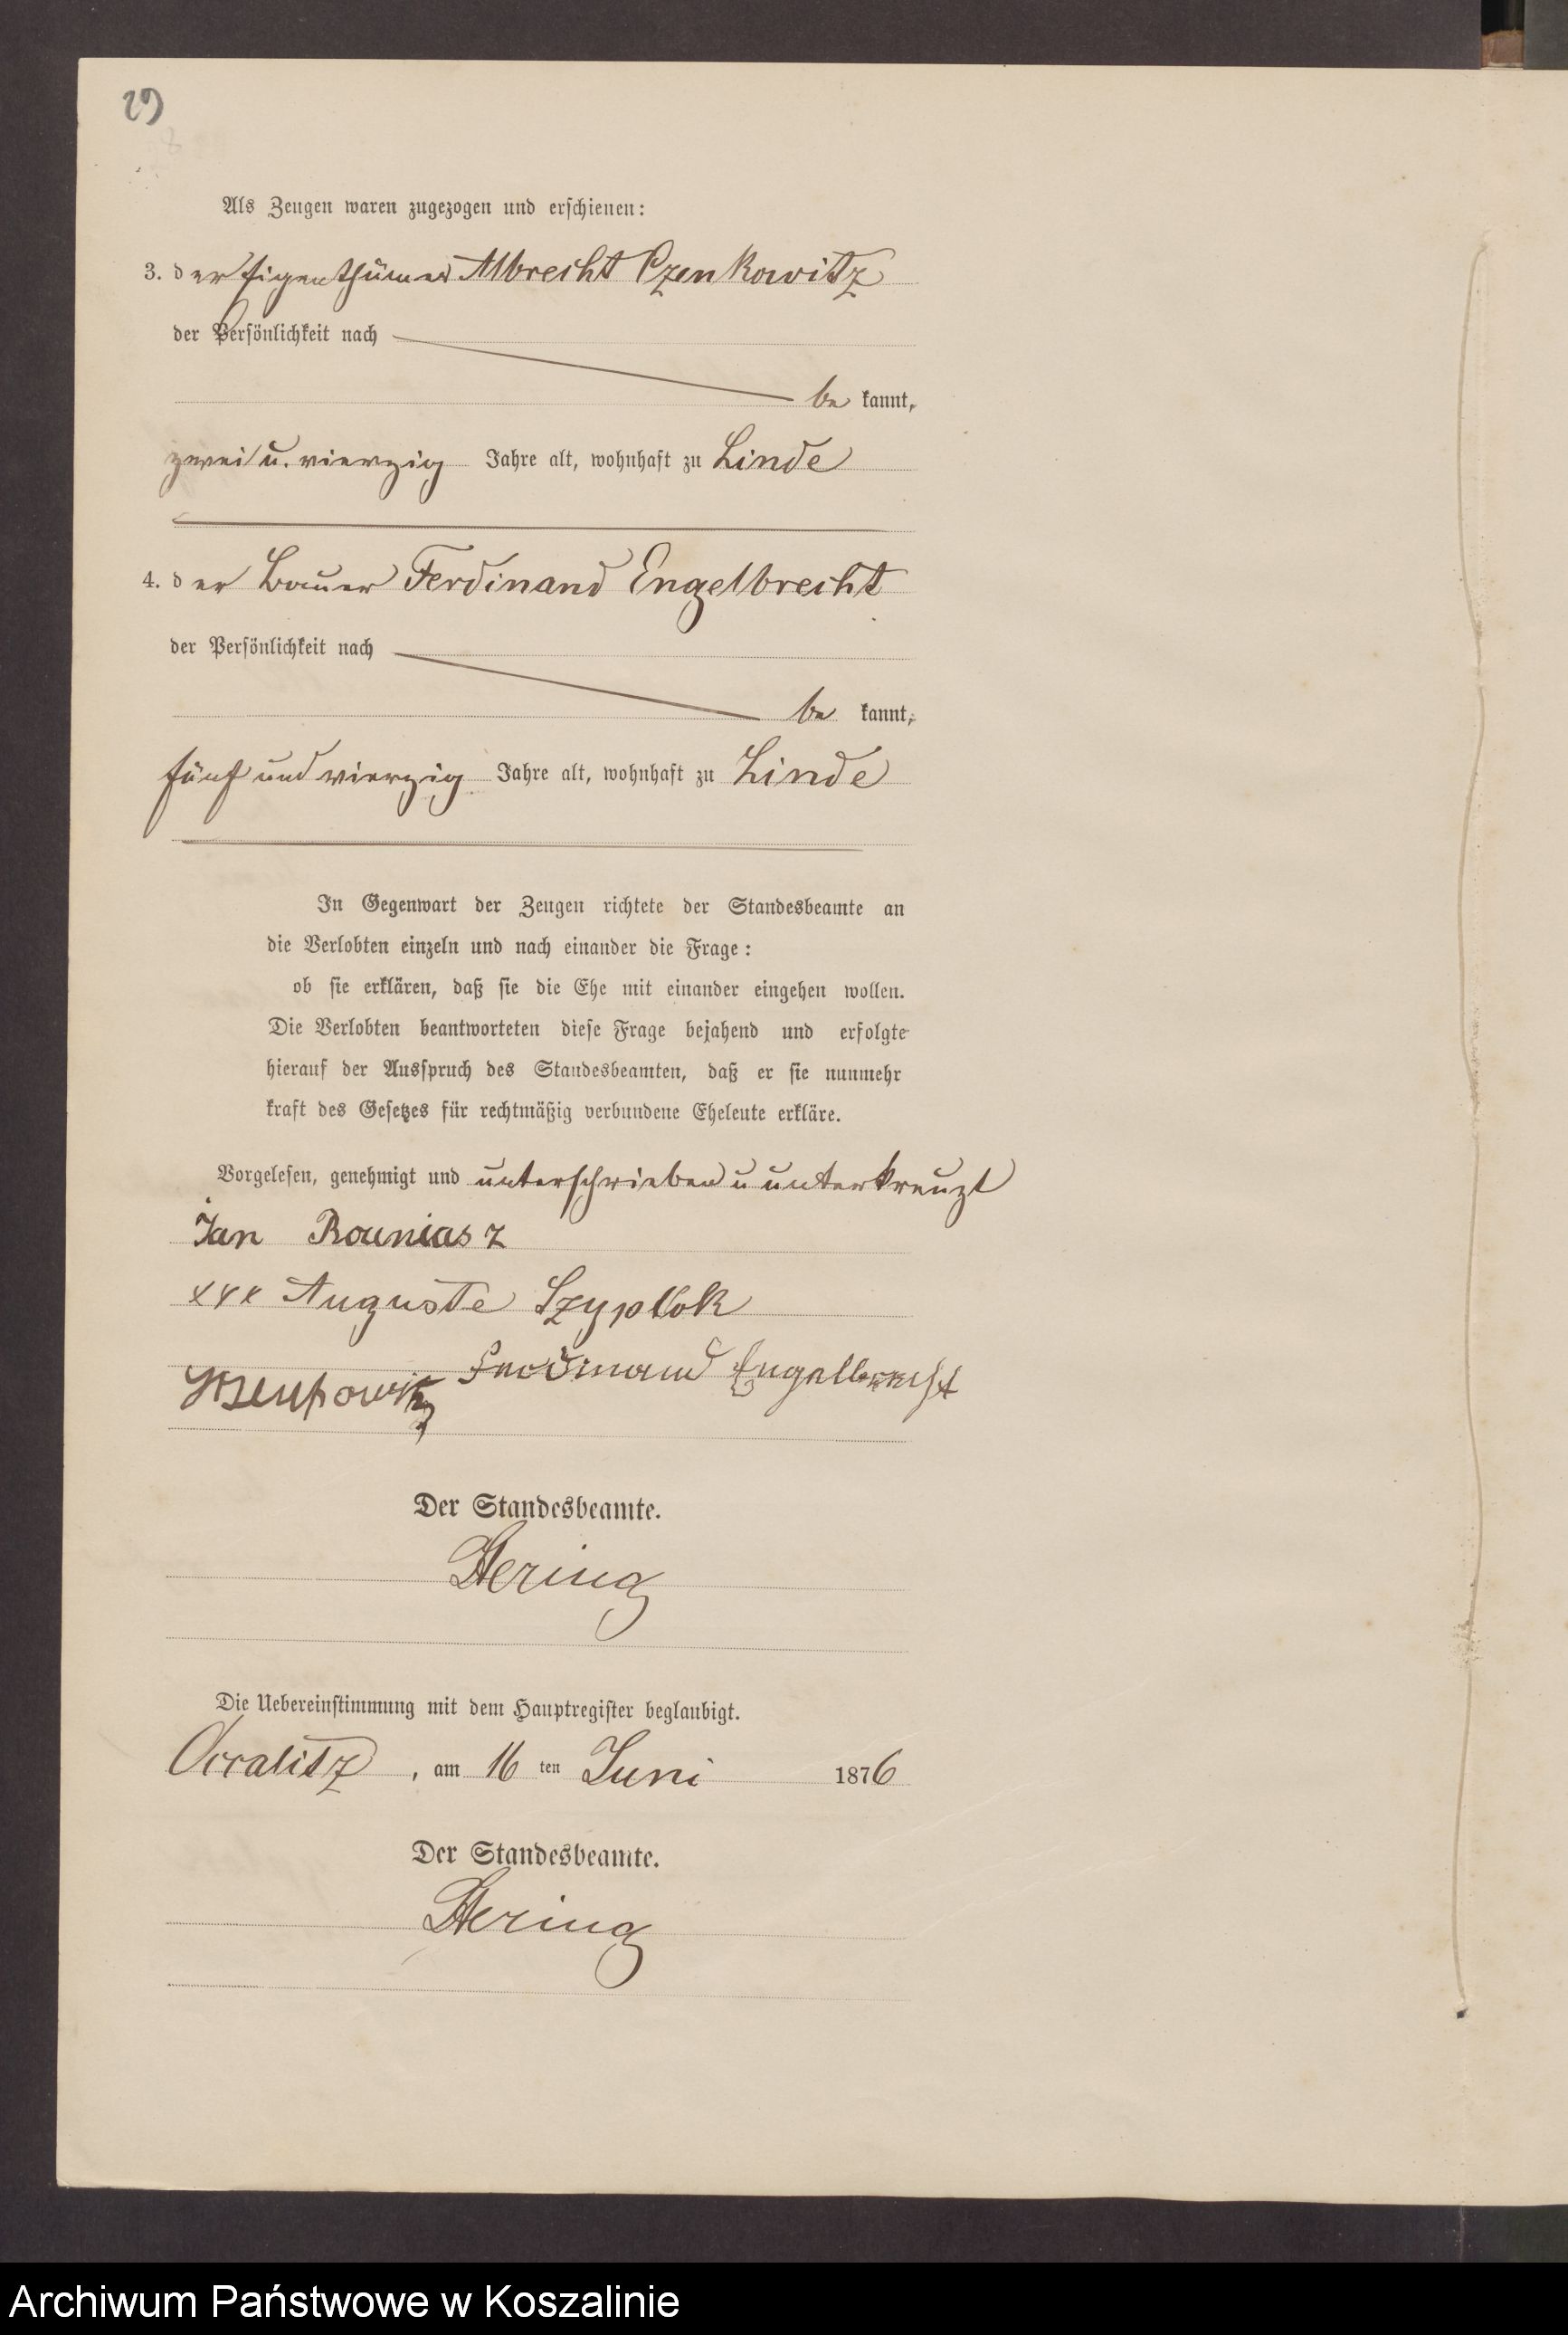 29
Als Zeugen waren zugezogen und erschienen:
3. der Eigenthümer Albrecht Czenkowitz
der Persönlichkeit nach
be kannt,
zwei u. vierzig Jahre alt, wohnhaft zu Linde
4. der Bauer Ferdinand Engelbrecht
der Persönlichkeit nach
be kannt,
fünf und vierzig Jahre alt, wohnhaft zu Linde
In Gegenwart der Zeugen richtete der Standesbeamte an
die Verlobten einzeln und nach einander die Frage:
ob sie erklären, daß sie die Ehe mit einander eingehen wollen.
Die Verlobten beantworteten diese Frage bejahend und erfolgte
hierauf der Ausspruch des Standesbeamten, daß er sie nunmehr
kraft des Gesetzes für rechtmäßig verbundene Eheleute erkläre.
Vorgelesen, genehmigt und unterschrieben u unterkreuzt
Jan Rouniasz
xxx Auguste Szyplok
Ferdinand Engelbrecht
Der Standesbeamte.
Hering
Die Uebereinstimmung mit dem Hauptregister beglaubigt.
Occalitz, am 16 ten Juni 1876
Der Standesbeamte.
Hering
Archiwum Państwowe w Koszalinie